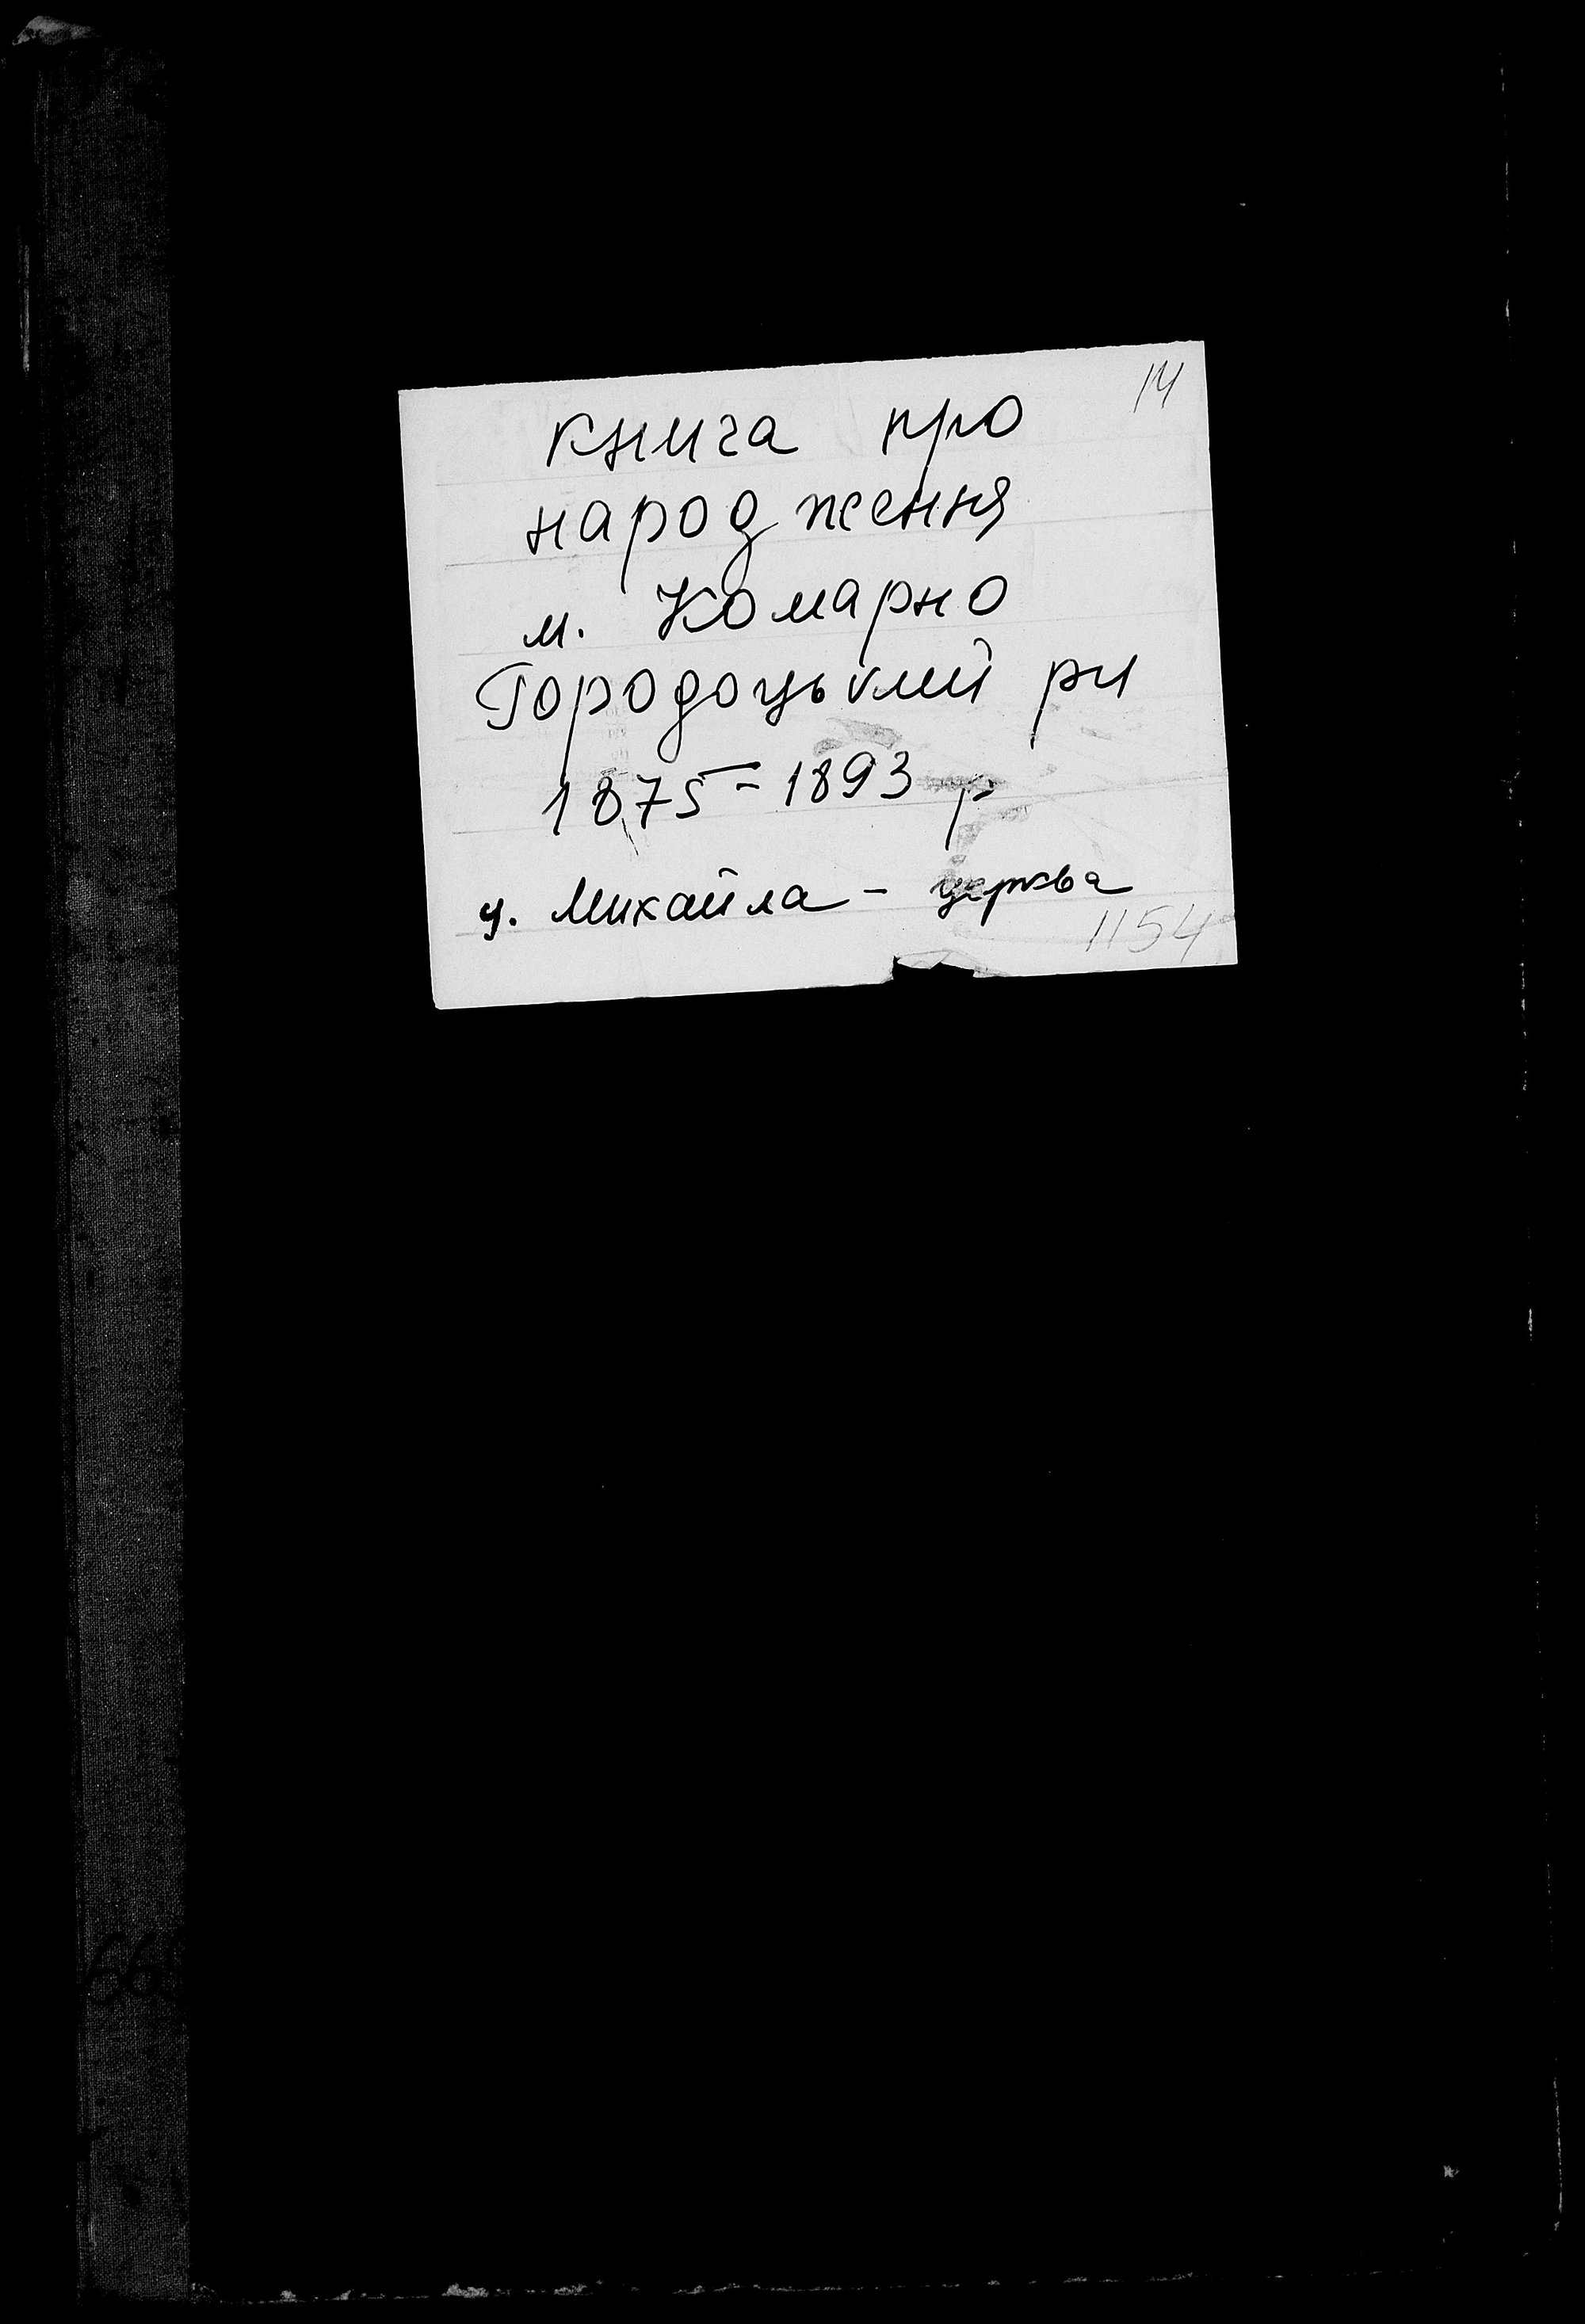 14
книга про
народження
м. Комарно
Городоцький рн
1875-1893 р
ц. Михайла - церква
1154